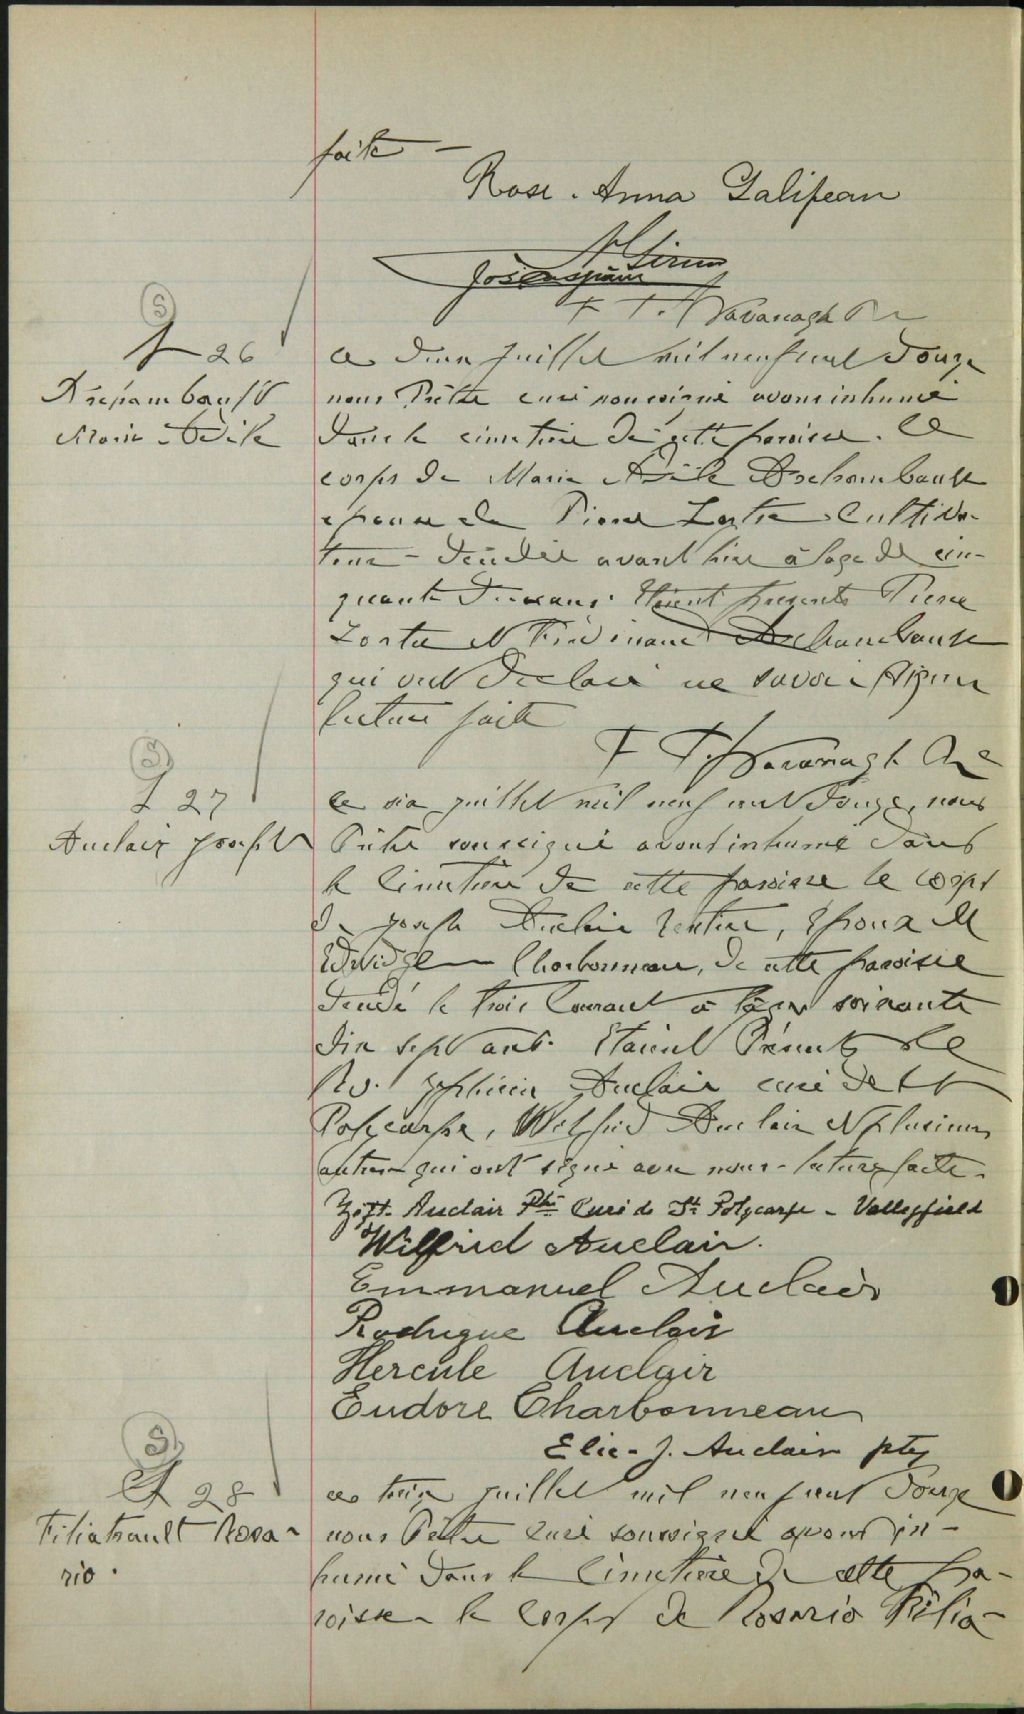 faite —
Rose-Anna Galipeau
F. T. Kavanagh
S
S 26
Archambault
Marie Adèle
Ce deux juillet mil neuf cent douze
nous Prêtre curé soussigné avons inhumé
dans le cimetière de cette paroisse le
corps de Marie Adèle Archambault
épouse de Pierre Lortie Cultiva-
teur - décédée avant hier à l'age de cin-
quante ans. Etaient présents Pierre
Lortie et Ferdinand Archambault
qui ont déclaré ne savoir signer
lecture faite
F. T. Kavanagh
S
S 27
Auclair Joseph
Ce six juillet mil neuf cent douze, nous
Prêtre soussigné avons inhumé dans
le Cimetière de cette paroisse le corps
de Joseph Auclair rentier, époux de
Edwidge Charbonneau, de cette paroisse
décédé le trois Courant à l'âge soixante
dix sept ans. Etaient Présents le
Rv. Zéphirin Auclair curé de St
Polycarpe, Wilfrid Auclair et plusieurs
autres qui ont signé avec nous - lecture faite.
Zéph. Auclair Ptre Curé de St Polycarpe - Valleyfield
Wilfrid Auclair.
Emmanuel Auclair
Rodrigue Auclair
Hercule Auclair
Eudore Charbonneau
Elie-J. Auclair ptre
S
S 28
Filiatrault Rosa-
rio.
Ce treize juillet mil neuf cent douze
nous Prêtre Curé soussigné avons in-
humé dans le Cimetière de cette pa-
roisse le Corps de Rosario Filia-